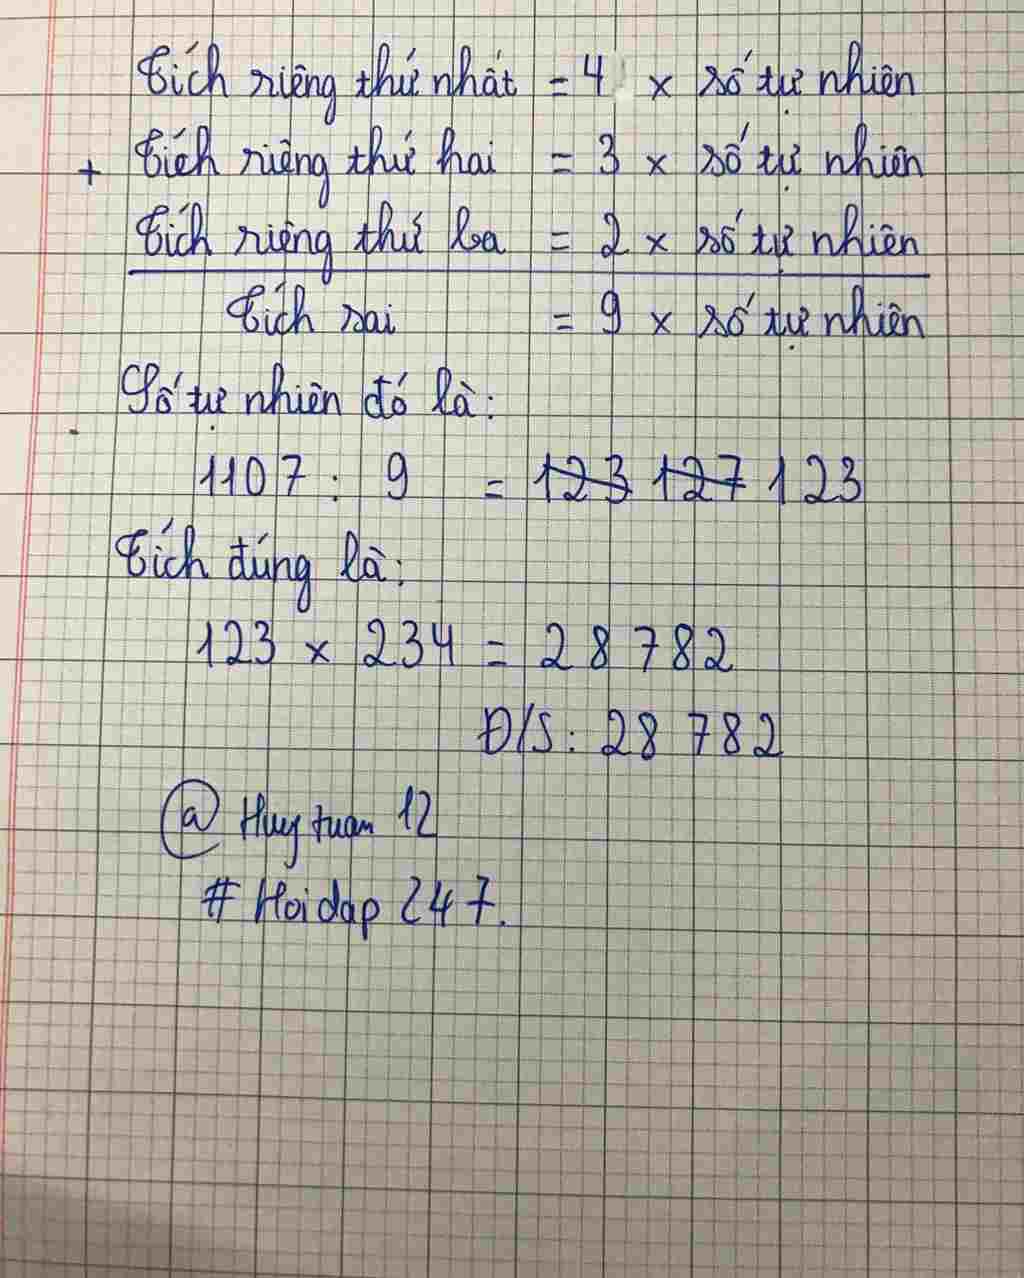 Tích riêng thứ nhất = 4 × số tự nhiên
+ Tích riêng thứ hai = 3 × số tự nhiên
Tích riêng thứ ba = 2 × số tự nhiên
Tích sai = 9 × số tự nhiên
Số tự nhiên đó là:
1107 : 9 = 123 127 123
Tích đúng là:
123 × 234 = 28 782
Đ/S: 28 782
@ Huy tuan 12
# Hoidap 247.